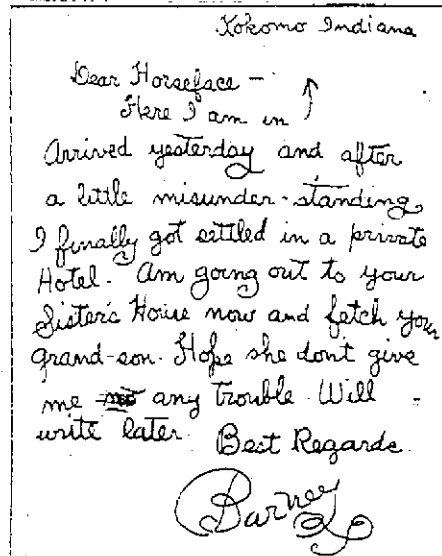 Kokomo Indiana
Dear Horseface —
Here I am in ↑
Arrived yesterday and after
a little misunder-standing,
I finally got settled in a private
Hotel. Am going out to your
Sister's House now and fetch your
grand-son. Hope she don't give
me any trouble. Will -
write later. Best Regards.
Barney